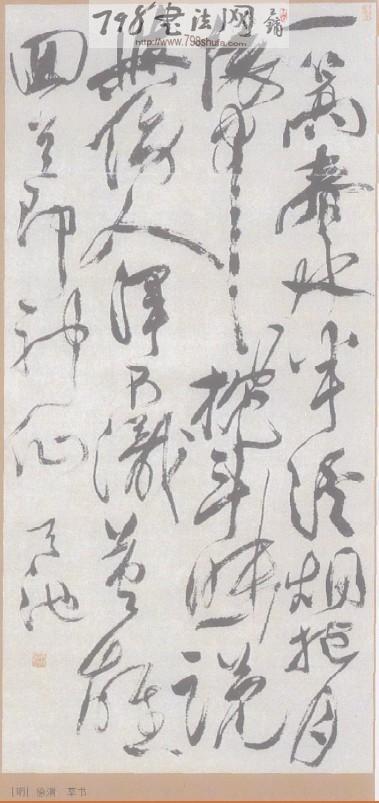 798書法网
http://www.798shufa.com
一篙春水半溪烟抱月
懷中枕斗眠説
與傍人渾不識英雄
回首即神仙 天池
[明] 徐渭 草书